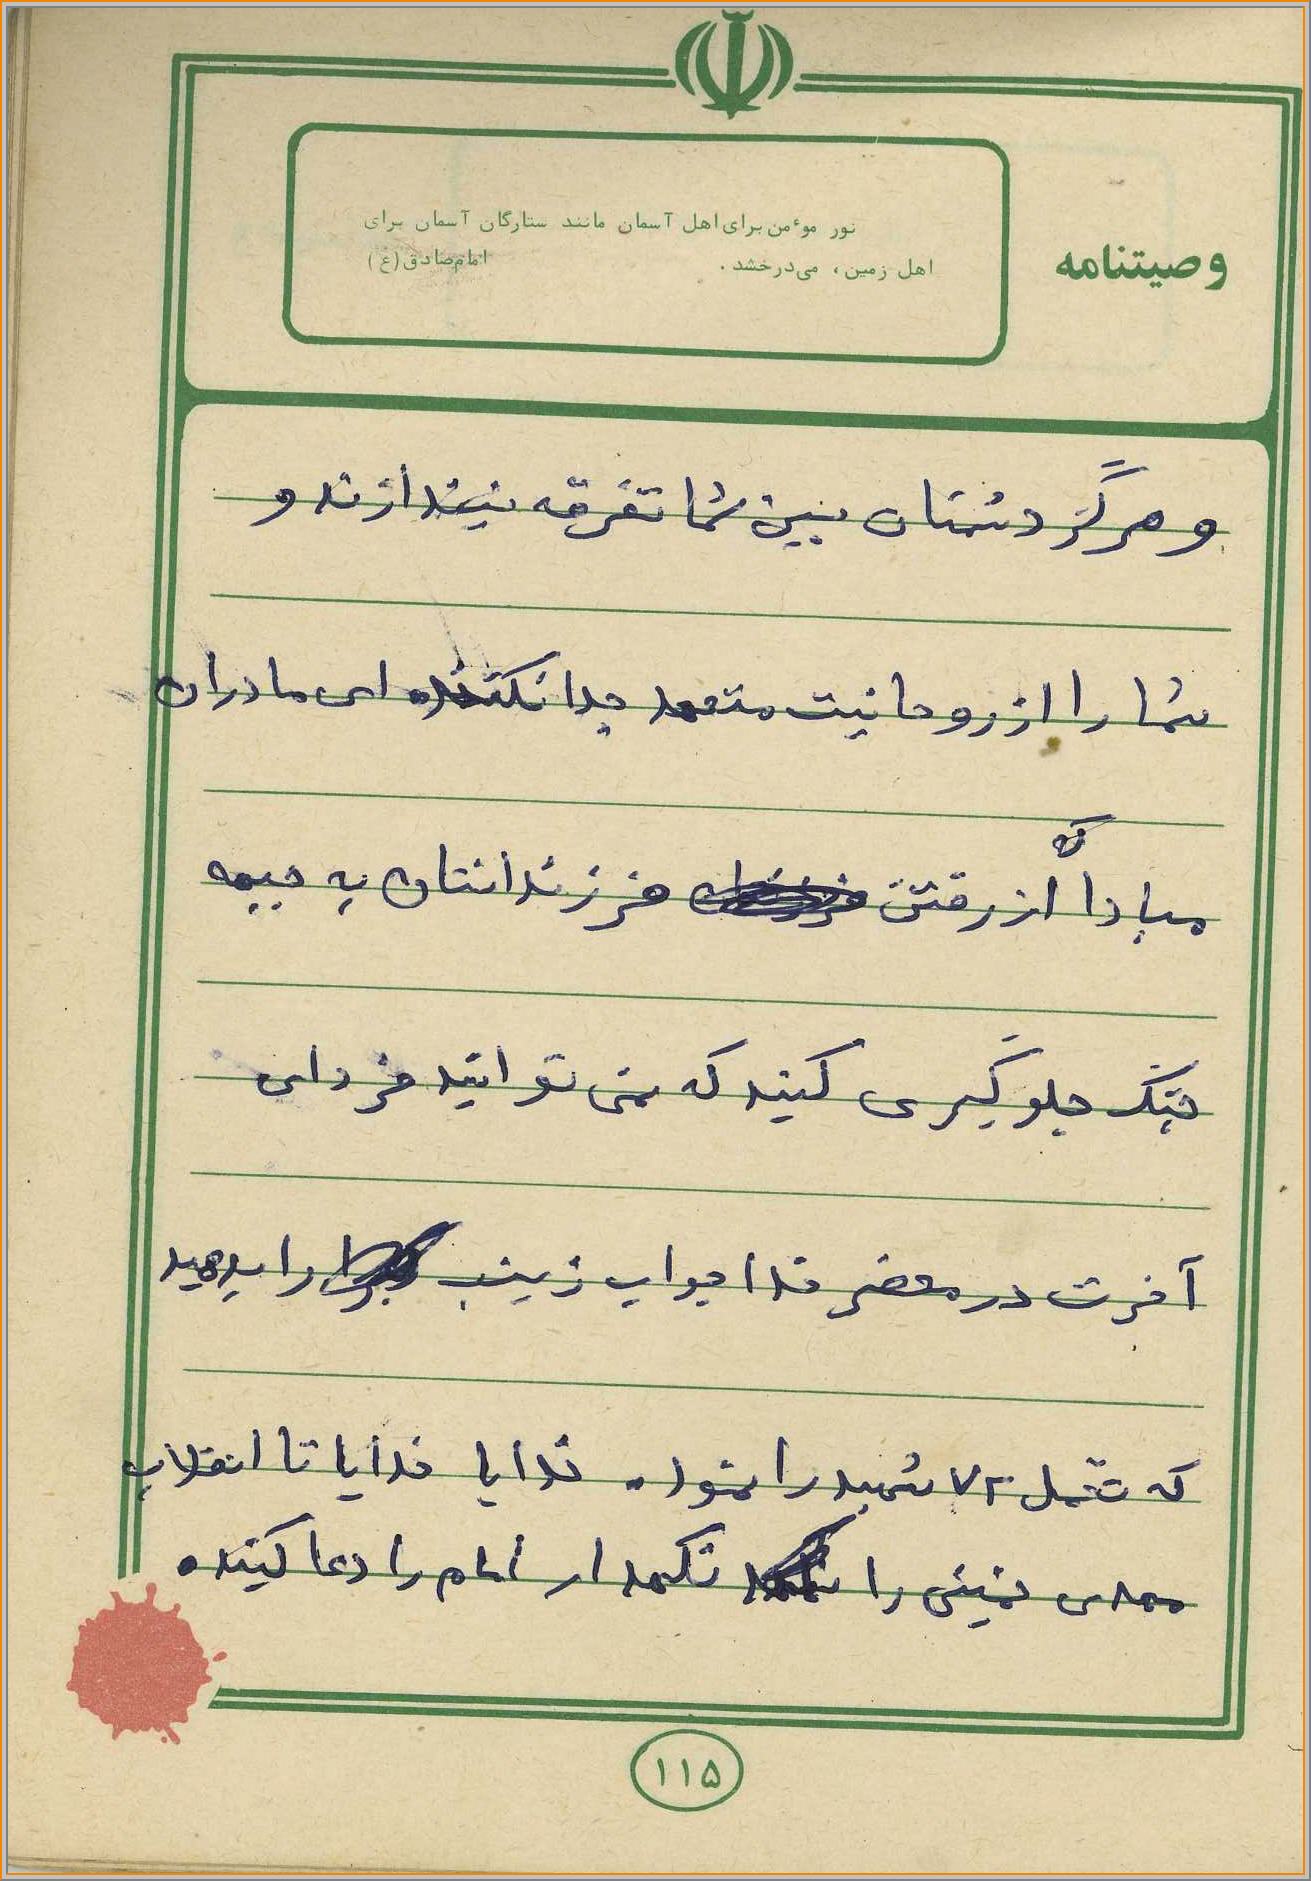 وصیتنامه
نور موءمن برای اهل آسمان مانند ستارگان آسمان برای
اهل زمین، می‌درخشد. امام صادق (ع)
و هرگز دشمنان بین شما تفرقه نیندازند و
شما را از روحانیت متعهد جدا نکنند. ای مادران
مبادا که از رفتن فرزندانتان به جبهه
جنگ جلوگیری کنید که نمی توانید فردای
آخرت در محضر خدا جواب زینب را بدهید
که تحمل ۷۲ شهید را نمود. خدایا خدایا تا انقلاب
مهدی خمینی را نگهدار امام را دعا کنید.
۱۱۵